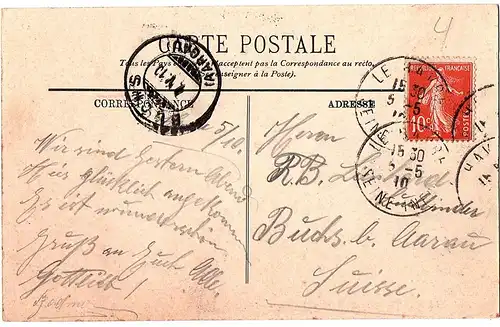 4
CARTE POSTALE
Tous les Pays acceptent pas la Correspondance au recto.
(se renseigner à la Poste).
CORRESPONDANCE
ADRESSE
(AARGAU)
BUCHS
LE HAVRE
15 30
5
10
SEINE INF
FRANÇAISE
POSTES
10c
5/10.
Wir sind Gestern Abend
Hier glücklich angekommen
Es ist wunderschön
Gruß an Euch Alle.
Gottlieb
Herrn
R.B.
Buchs b. Aarau
Suisse.